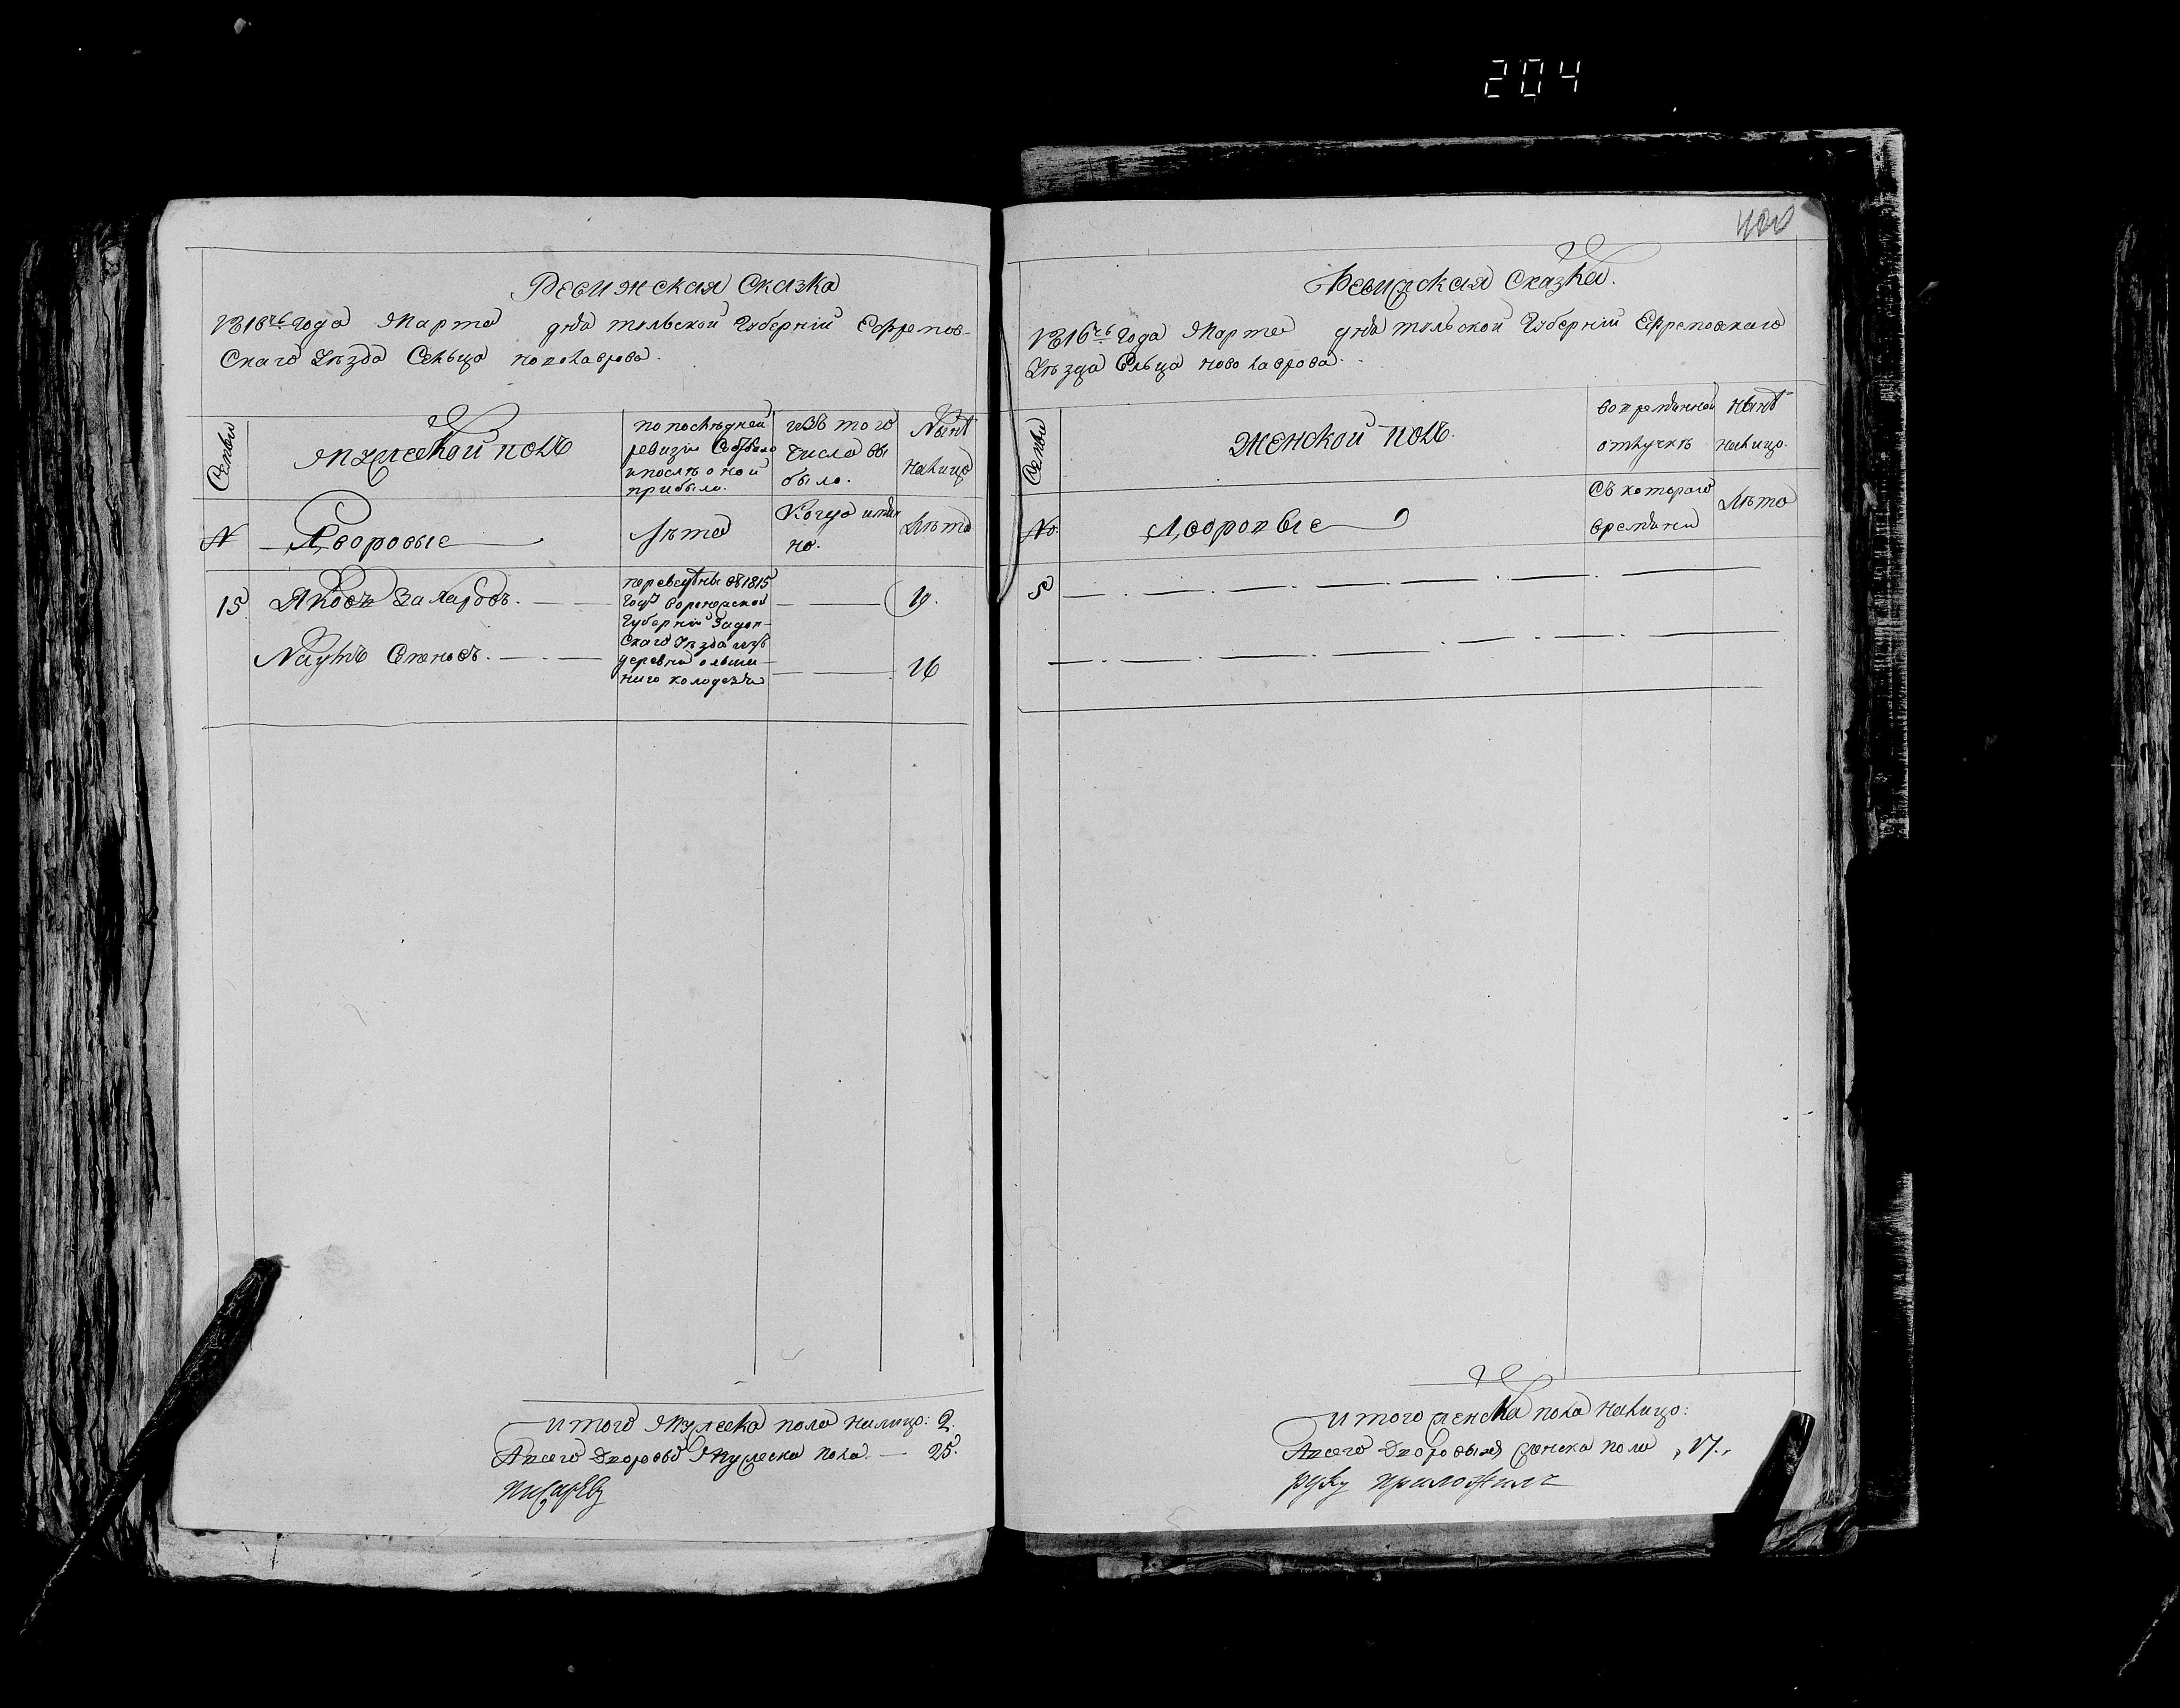 204
Ревижская Сказка
1816го года Марта дня тульской Губерніи Ефремов-
Скаго Уезда Сельца новолаврова.
Семьи
Мужеской полъ
по последней
ревизіи Состояло
и после оной
прибыло.
изъ того
числа вы
было.
Ныне
налицо
№
Дворовые
лета
Когда имян
но.
Лета
15 Яковъ Захаровъ. 19.
переведены въ 1815
Году воронежской
Губерніи Задон-
Скаго Уезда изъ
деревни ольши
ниго колодезя
Наумъ Степновъ. 16
итого Мужеска пола налицо: 2.
Авсего Дворовых Мужеска пола 25.
Писаревъ
400
Ревижская Сказка.
1816го года Марта дня тульской Губерніи Ефремовскаго
Уезда Сельца ново лаврова.
Семьи
Женской полъ.
во временной
отлучке
ныне
налицо.
№
Дворовые
Съ котораго
времяни
Лета
итого женска пола налицо:
Авсего Дворовыхъ женска пола 17.
руку приложилъ